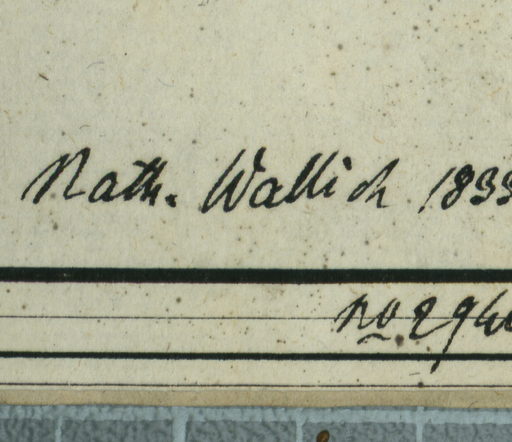 Nath. Wallich 1833
no. 2940